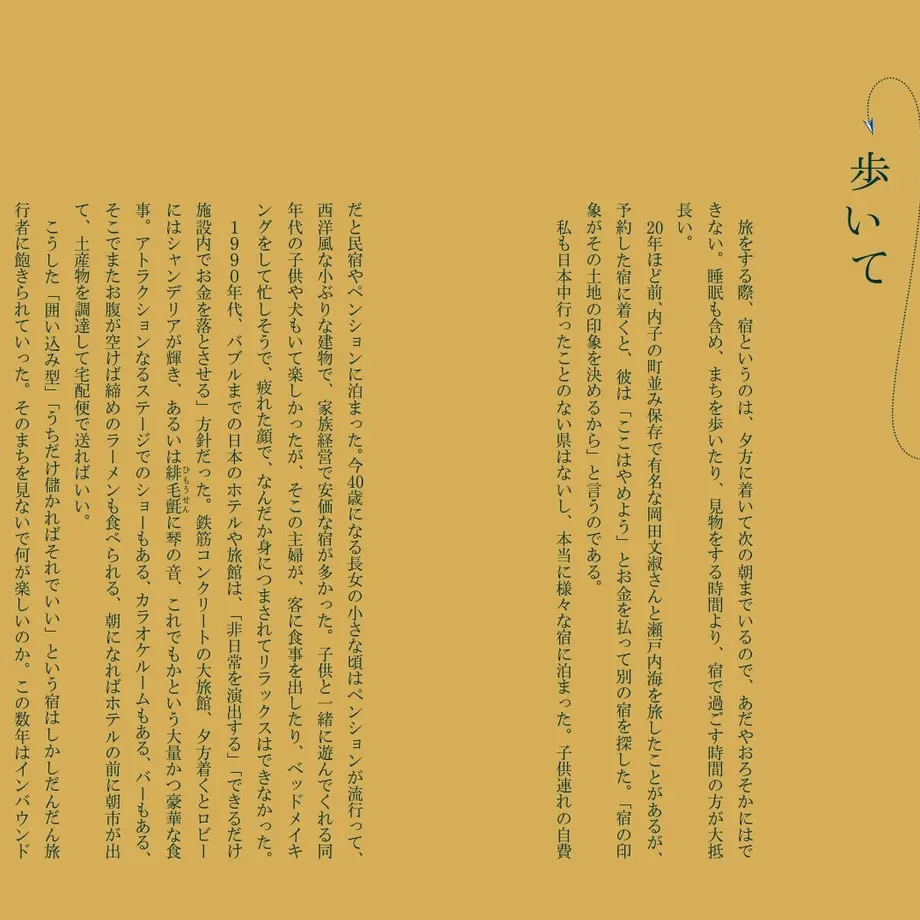 歩いて
旅をする際、宿というのは、夕方に着いて次の朝までいるので、あだやおろそかにはで
きない。睡眠も含め、まちを歩いたり、見物をする時間より、宿で過ごす時間の方が大抵
長い。
20年ほど前、内子の町並み保存で有名な岡田文淑さんと瀬戸内海を旅したことがあるが、
予約した宿に着くと、彼は「ここはやめよう」とお金を払って別の宿を探した。「宿の印
象がその土地の印象を決めるから」と言うのである。
私も日本中行ったことのない県はないし、本当に様々な宿に泊まった。子供連れの自費
だと民宿やペンションに泊まった。今40歳になる長女の小さな頃はペンションが流行って、
西洋風な小ぶりな建物で、家族経営で安価な宿が多かった。子供と一緒に遊んでくれる同
年代の子供や犬もいて楽しかったが、そこの主婦が、客に食事を出したり、ベッドメイキ
ングをして忙しそうで、疲れた顔で、なんだか身につまされてリラックスはできなかった。
1990年代、バブルまでの日本のホテルや旅館は、「非日常を演出する」「できるだけ
施設内でお金を落とさせる」方針だった。鉄筋コンクリートの大旅館、夕方着くとロビー
にはシャンデリアが輝き、あるいは緋毛氈に琴の音、これでもかという大量かつ豪華な食
ひもうせん
事。アトラクションなるステージでのショーもある、カラオケルームもある、バーもある、
そこでまたお腹が空けば締めのラーメンも食べられる、朝になればホテルの前に朝市が出
て、土産物を調達して宅配便で送ればいい。
こうした「囲い込み型」「うちだけ儲かればそれでいい」という宿はしかしだんだん旅
行者に飽きられていった。そのまちを見ないで何が楽しいのか。この数年はインバウンド